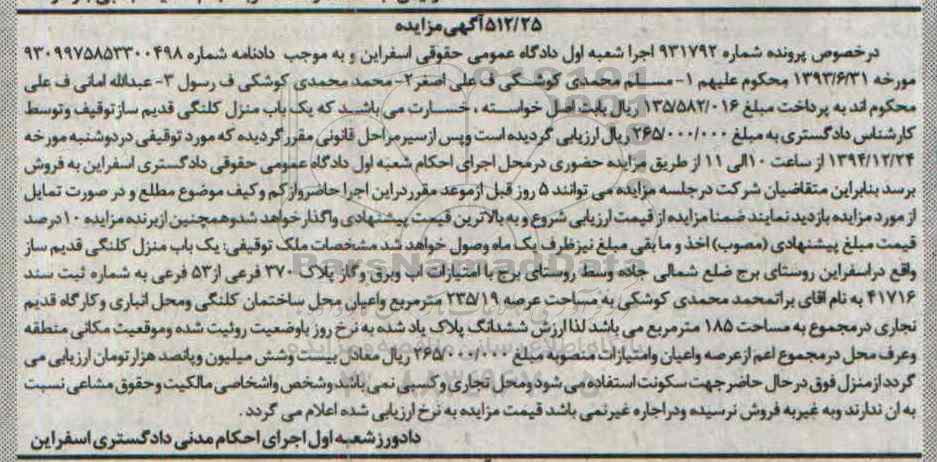 ۵۱۲/۲۵آگهی مزایده
درخصوص پرونده شماره ۹۳۱۷۹۲ اجرا شعبه اول دادگاه عمومی حقوقی اسفراین و به موجب دادنامه شماره ۹۳۰۹۹۷۵۸۵۳۳۰۰۴۹۸
مورخه ۱۳۹۳/۶/۳۱ محکوم علیهم ۱- مسلم محمدی کوشکی ف علی اصغر۲- محمد محمدی کوشکی ف رسول ۳- عبدالله امانی ف علی
محکوم اند به پرداخت مبلغ ۱۳۵/۵۸۲/۰۱۶ ریال بابت اصل خواسته ، خسارت می باشد که یک باب منزل کلنگی قدیم ساز توقیف وتوسط
کارشناس دادگستری به مبلغ ۲۶۵/۰۰۰/۰۰۰ ریال ارزیابی گردیده است وپس ازسیرمراحل قانونی مقررگردیده که مورد توقیفی دردوشنبه مورخه
۱۳۹۴/۱۲/۲۴ از ساعت ۱۰الی ۱۱ از طریق مزایده حضوری درمحل اجرای احکام شعبه اول دادگاه عمومی حقوقی دادگستری اسفراین به فروش
برسد بنابراین متقاضیان شرکت درجلسه مزایده می توانند ۵ روز قبل ازموعد مقرردراین اجرا حاضروازکم وکیف موضوع مطلع و در صورت تمایل
از مورد مزایده بازدید نمایند ضمنا مزایده از قیمت ارزیابی شروع و به بالاترین قیمت پیشنهادی واگذارخواهد شدوهمچنین ازبرنده مزایده ۱۰درصد
قیمت مبلغ پیشنهادی (مصوب) اخذ و ما بقی مبلغ نیزظرف یک ماه وصول خواهد شد مشخصات ملک توقیفی: یک باب منزل کلنگی قدیم ساز
واقع دراسفراین روستای برج ضلع شمالی جاده وسط روستای برج با امتیازات اب وبرق وگاز پلاک ۳۷۰ فرعی از۵۳ فرعی به شماره ثبت سند
۴۱۷۱۶ به نام اقای براتمحمد محمدی کوشکی به مساحت عرصه ۲۳۵/۱۹ مترمربع واعیان محل ساختمان کلنگی ومحل انباری وکارگاه قدیم
نجاری درمجموع به مساحت ۱۸۵ مترمربع می باشد لذا ارزش ششدانگ پلاک یاد شده به نرخ روز باوضعیت روئیت شده وموقعیت مکانی منطقه
وعرف محل درمجموع اعم ازعرصه واعیان وامتیازات منصوبه مبلغ ۲۶۵/۰۰۰/۰۰۰ ریال معادل بیست وشش میلیون وپانصد هزارتومان ارزیابی می
گردد ازمنزل فوق درحال حاضرجهت سکونت استفاده می شود ومحل تجاری وکسبی نمی باشد وشخص واشخاصی مالکیت وحقوق مشاعی نسبت
به ان ندارند وبه غیربه فروش نرسیده ودراجاره غیرنمی باشد قیمت مزایده به نرخ ارزیابی شده اعلام می گردد .
دادورزشعبه اول اجرای احکام مدنی دادگستری اسفراین